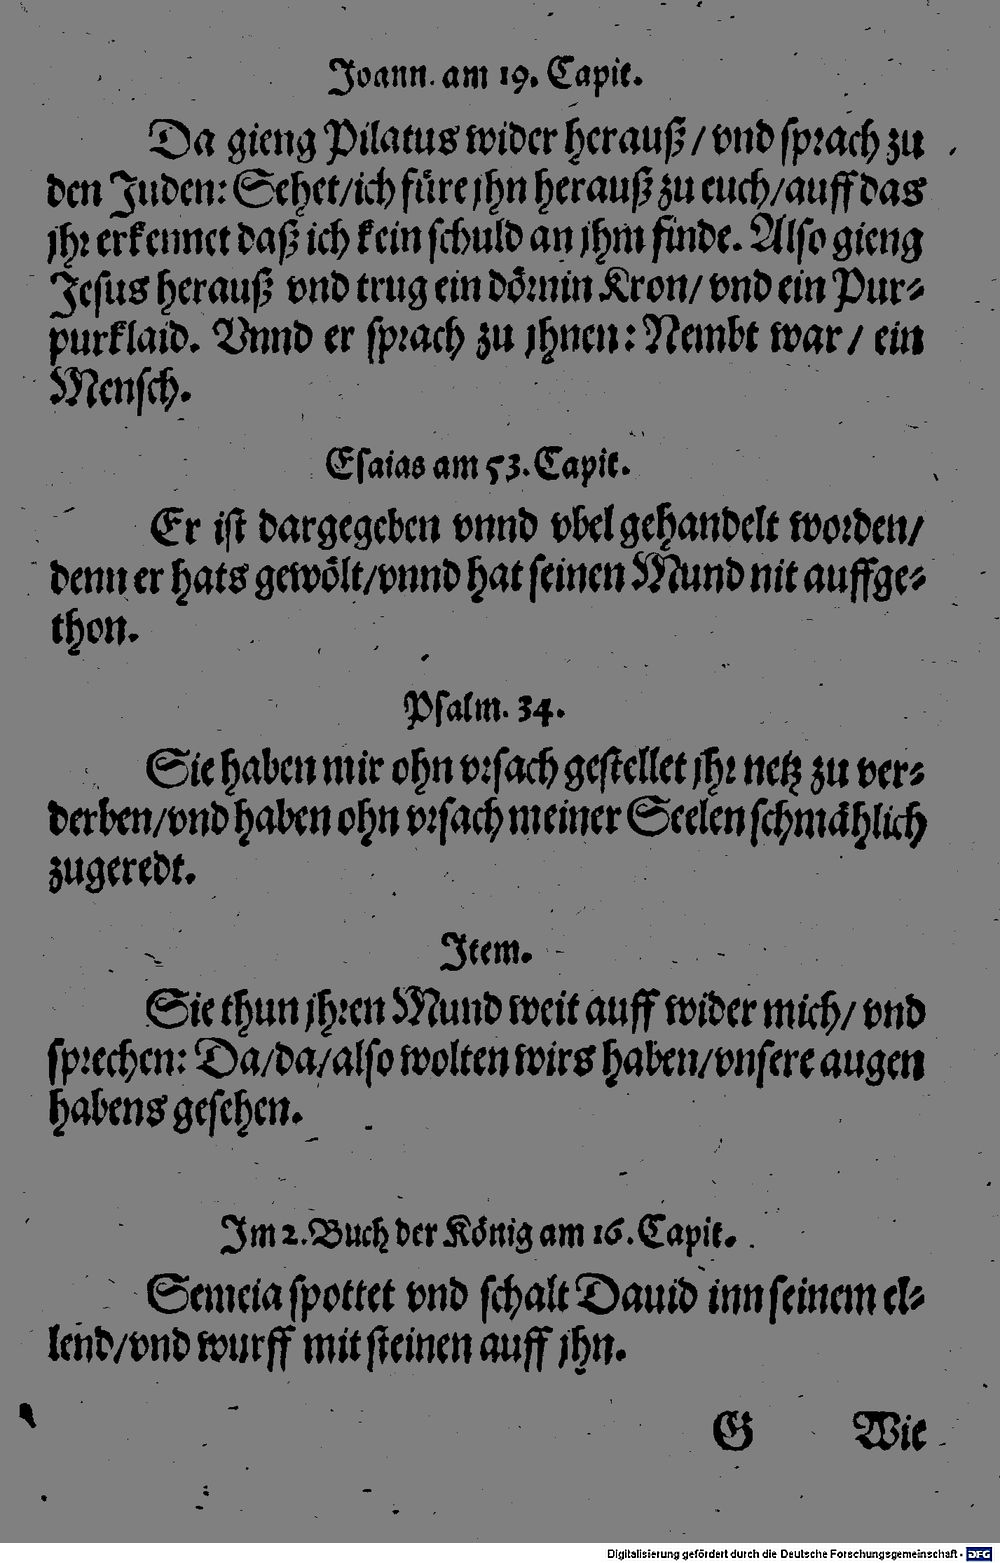 Joann. am 19. Capit.
Da gieng Pilatus wider herauß / vnd sprach zu
den Juden: Sehet/ich füre jhn herauß zu euch/auff das
jhr erkennet daß ich kein schuld an jhm finde. Also gieng
Jesus herauß vnd trug ein dörnin Kron/ vnd ein Pur-
purklaid. Vnnd er sprach zu jhnen: Nembt war / ein
Mensch.
Esaias am 53. Capit.
Er ist dargegeben vnnd vbel gehandelt worden/
denn er hats gewölt/vnnd hat seinen Mund nit auffge-
thon.
Psalm. 34.
Sie haben mir ohn vrsach gestellet jhr netz zu ver-
derben/vnd haben ohn vrsach meiner Seelen schmählich
zugeredt.
Item.
Sie thun jhren Mund weit auff wider mich/ vnd
sprechen: Da/da/also wolten wirs haben/vnsere augen
habens gesehen.
Im 2. Buch der König am 16. Capit.
Semeia spottet vnd schalt Dauid inn seinem el-
lend/vnd wurff mit steinen auff jhn.
G Wie
Digitalisierung gefördert durch die Deutsche Forschungsgemeinschaft - DFG